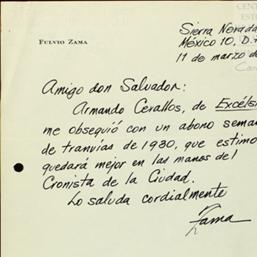 CEN
EST
FULVIO ZAMA
Sierra Nevada
México 10, D.F
11 de marzo de
Amigo don Salvador:
Armando Cevallos, de Excélsi
me obsequió con un abono seman
de tranvías de 1930, que estimo
quedará mejor en las manos del
Cronista de la Ciudad.
Lo saluda cordialmente
Zama